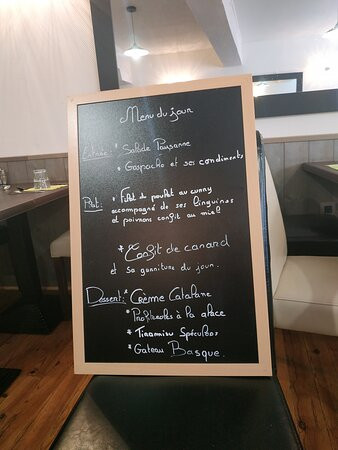 Menu du jour
Entrée: * Salade Paysanne
* Gaspacho et ses condiments
Plat: * Filet de poulet au curry
accompagné de ses linguines
et poivrons confit au miel
* Confit de canard
et sa garniture du jour.
Dessert: * Crème Catalane
* Profiteroles à la glace
* Tiramisu Spéculoos
* Gateau Basque.